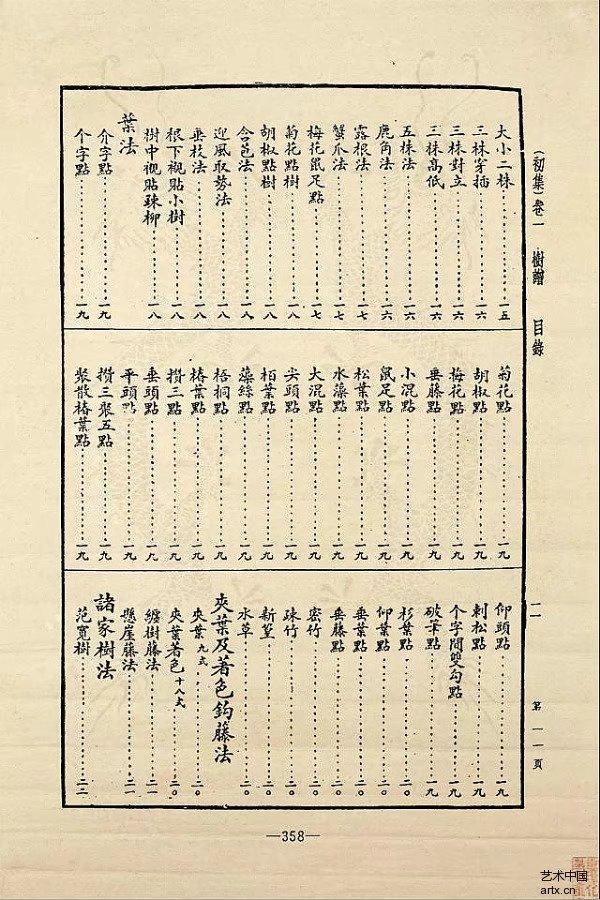 （初集）卷一 樹譜 目錄 二 第一一頁
大小二株……一五
三株穿插……一六
三株對立……一六
三株高低……一六
五株法……一六
鹿角法……一六
露根法……一七
蟹爪法……一七
梅花鼠足點……一七
菊花點樹……一八
胡椒點樹……一八
含苞法……一八
迎風取勢法……一八
垂枝法……一八
根下襯貼小樹……一八
樹中襯貼疎柳……一八
葉法
介字點……一九
个字點……一九
菊花點……一九
胡椒點……一九
梅花點……一九
垂藤點……一九
小混點……一九
鼠足點……一九
松葉點……一九
水藻點……一九
大混點……一九
尖頭點……一九
栢葉點……一九
藻絲點……一九
梧桐點……一九
椿葉點……一九
攢三點……一九
垂頭點……一九
平頭點……一九
攢三聚五點……一九
聚散椿葉點……一九
仰頭點……一九
刺松點……一九
个字間雙勾點……一九
破筆點……一九
杉葉點……二〇
仰葉點……二〇
垂葉點……二〇
垂藤點……二〇
密竹……二〇
疎竹……二〇
新篁……二〇
水草……二〇
夾葉及著色鈎藤法
夾葉九式……二〇
夾葉著色十八式……二〇
纏樹藤法……二一
懸崖藤法……二一
諸家樹法
范寬樹……二二
—358—
艺术中国
artx.cn